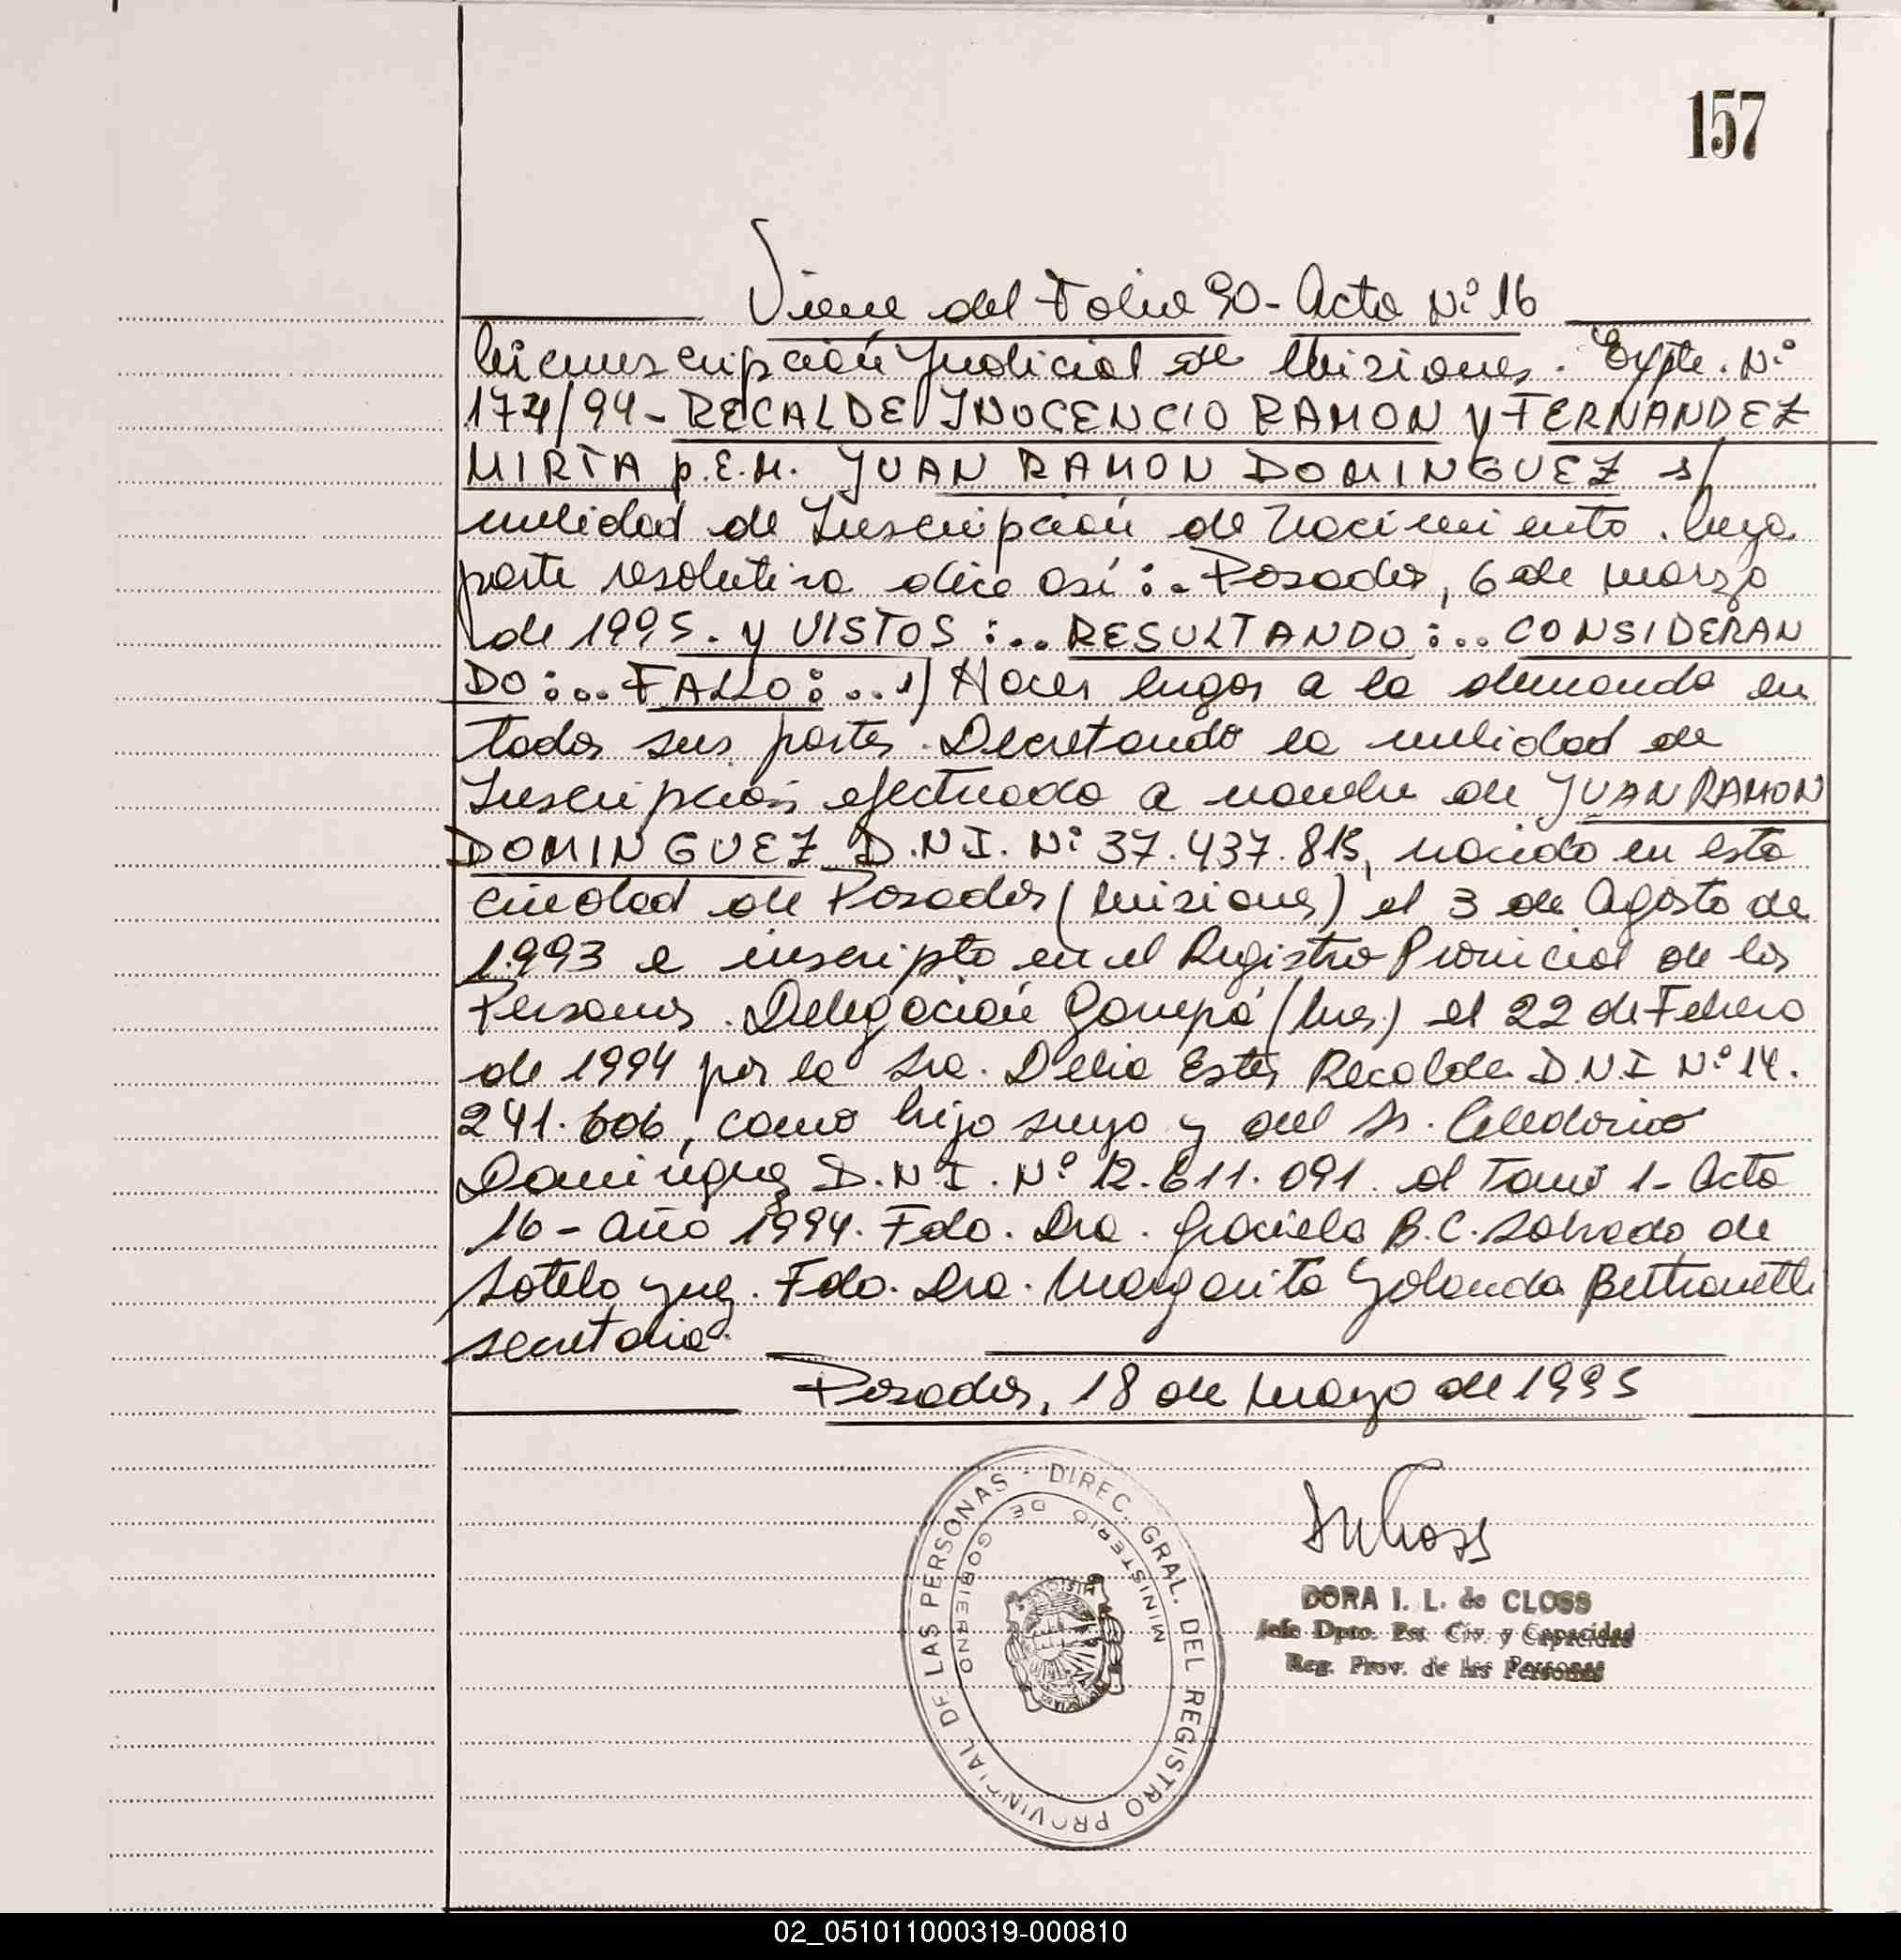 157
Viene del Folio 90 - Acta Nº 16
Circunscripción Judicial de Misiones. Expte. Nº
174/94 - RECALDE INOCENCIO RAMON y FERNANDEZ
MIRTA p.E.M. JUAN RAMON DOMINGUEZ s/
nulidad de Inscripción de Nacimiento. Cuya
parte resolutiva dice así:. Posadas, 6 de marzo
de 1995. y VISTOS:.. RESULTANDO:.. CONSIDERAN
DO:.. FALLO:.. 1) Hacer lugar a la demanda en
todas sus partes. Decretando la nulidad de
Inscripción efectuada a nombre de JUAN RAMON
DOMINGUEZ D.N.I. Nº 37.437.813, nacido en esta
ciudad de Posadas (Misiones) el 3 de Agosto de
1.993 e inscripto en el Registro Provincial de las
Personas. Delegación Garupá (Mnes.) el 22 de Febrero
de 1994 por la Sra. Delia Ester Recalde D.N.I Nº 14.
241.606, como hijo suyo y del Sr. Celedonio
Dominguez D.N.I. Nº 12.611.091 al Tomo 1 - Acta
16 - año 1994. Fdo. Dra. Graciela B.C. Salvado de
Sotelo Juez. Fdo. Dra. Margarita Yolanda
secretaria.
Posadas, 18 de mayo de 1995
DIREC. GRAL. DEL REGISTRO PROVINCIAL DE LAS PERSONAS
MINISTERIO DE GOBIERNO
DORA I. L. de CLOSS
Jefe Dpto. Est. Civ. y Capacidad
Reg. Prov. de las Personas
02_051011000319-000810